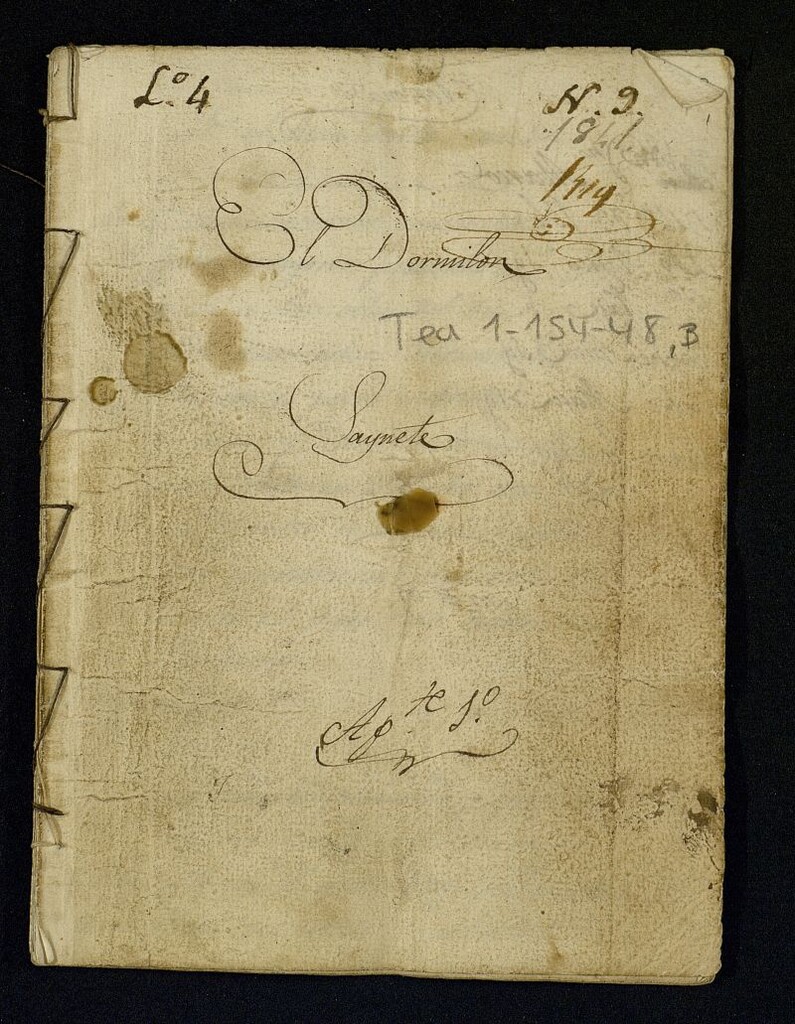 L.º 4
N. 9.
El Dormilon
Tea 1-154-48, B
Saynete
Ap.te 1º